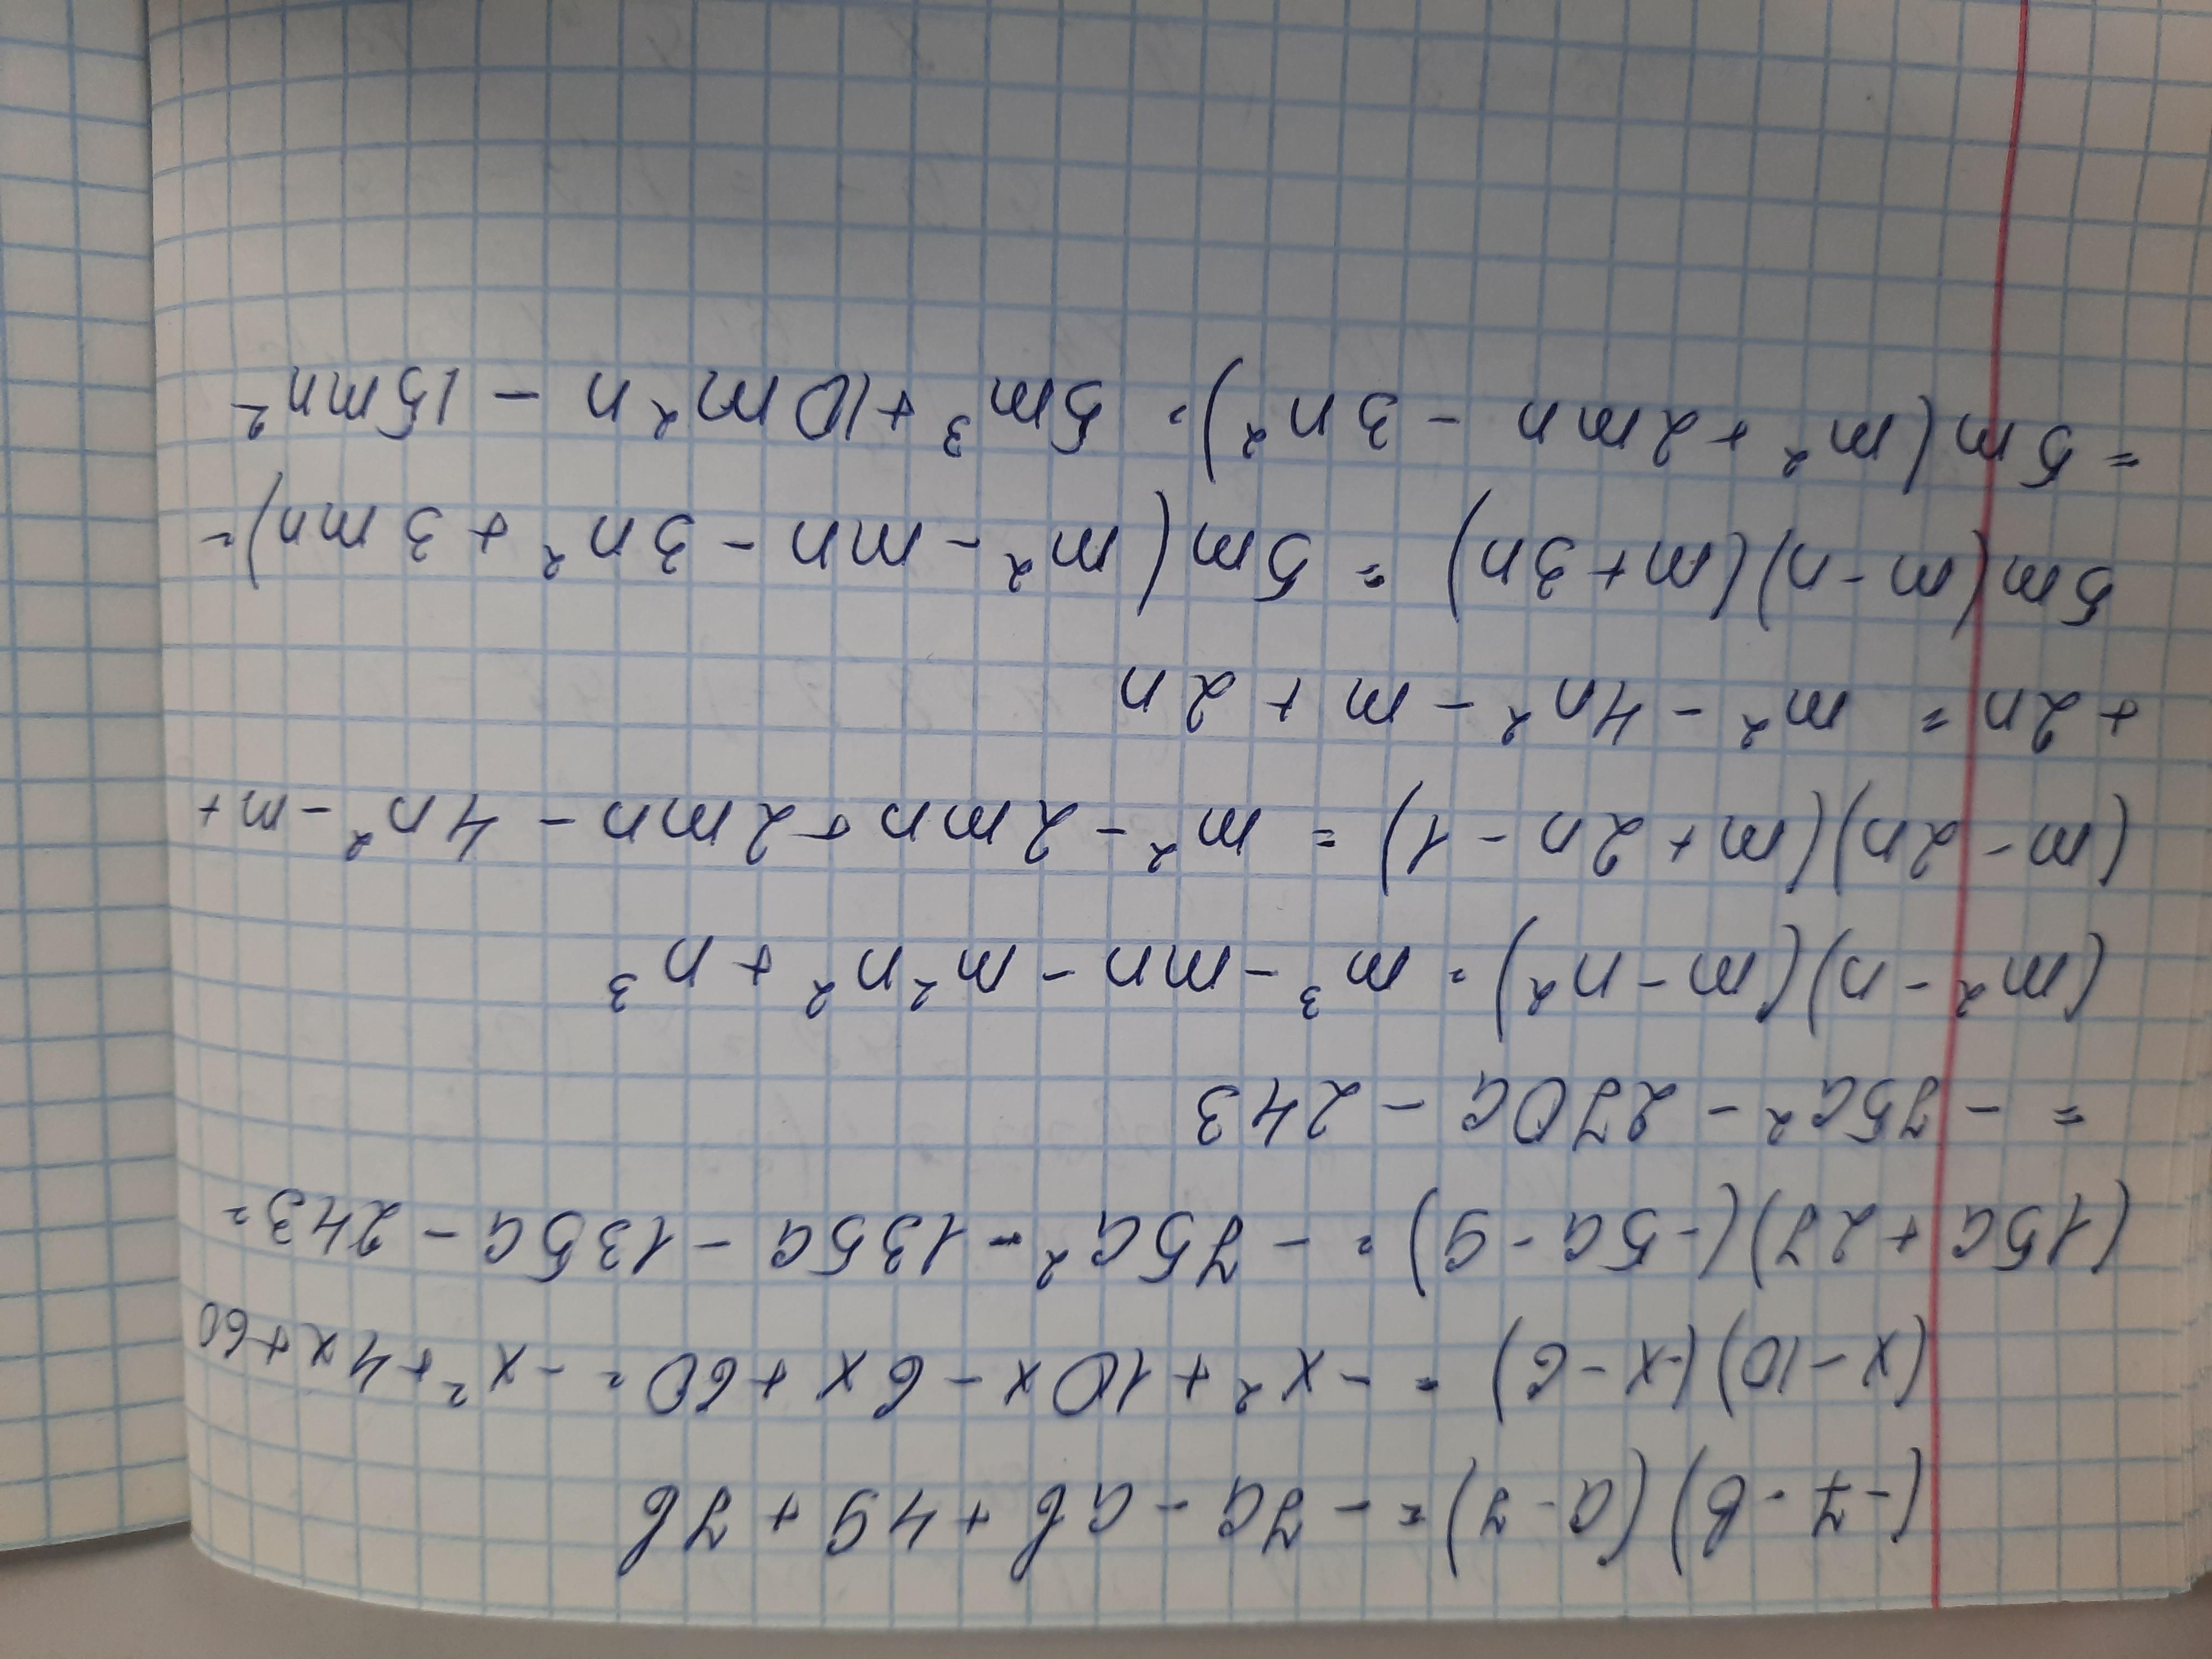 (-7-b)(a-7)=-7a-ab+49+7b
(x-10)(-x-6)=-x²+10x-6x+60=-x²+4x+60
(15a+27)(-5a-9)=-75a²-135a-135a-243=
=-75a²-270a-243
(m²-n)(m-n²)=m³-mn-m²n²+n³
(m-2n)(m+2n-1)=m²-2mn+2mn-4n²-m+
+2n=m²-4n²-m+2n
5m(m-n)(m+3n)=5m(m²-mn-3n²+3mn)=
=5m(m²+2mn-3n²)=5m³+10m²n-15mn²